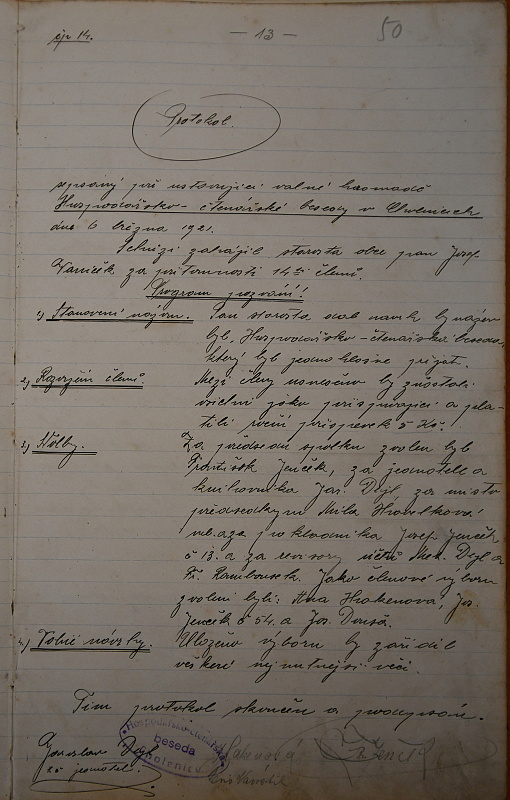 čp 14. — 13 — 50
Protokol.
sepsaný při ustavující valné hromadě
Hospodářsko - čtenářské besedy v
dne 6 března 1921.
Schůzi zahájil starosta obce pan Josef
Vaníček za přítomnosti 14ti členů.
Program jednání!
1) Stanovení názvu. Pan starosta podal návrh by název
byl Hospodářsko - čtenářská beseda
který byl jednohlasně přijat.
2) členů. Mezi členy usneseno by zůstali
všichni jako přispívající a pla-
tili roční příspěvek 5 Kč.
3) Volby. Za předsedu spolku zvolen byl
František Jeníček, za jednatele a
knihovníka Jar. Dejl, za místo
předsedkyni Mila
a za pokladníka Josef Jeníček
č 13. a za revisory účtů Met. Dejl a
Fr. Rambousek. Jako členové výboru
zvoleni byli: Ana Jos.
Jeníček č 54. a Jos.
4) Volné návrhy. Uloženo výboru by zařídil
veškeré nejnutnější věci.
Tím protokol skončen a podepsán.
Jaroslav Dejl
t. č. jednatel.
Hospodářsko-čtenářská
beseda